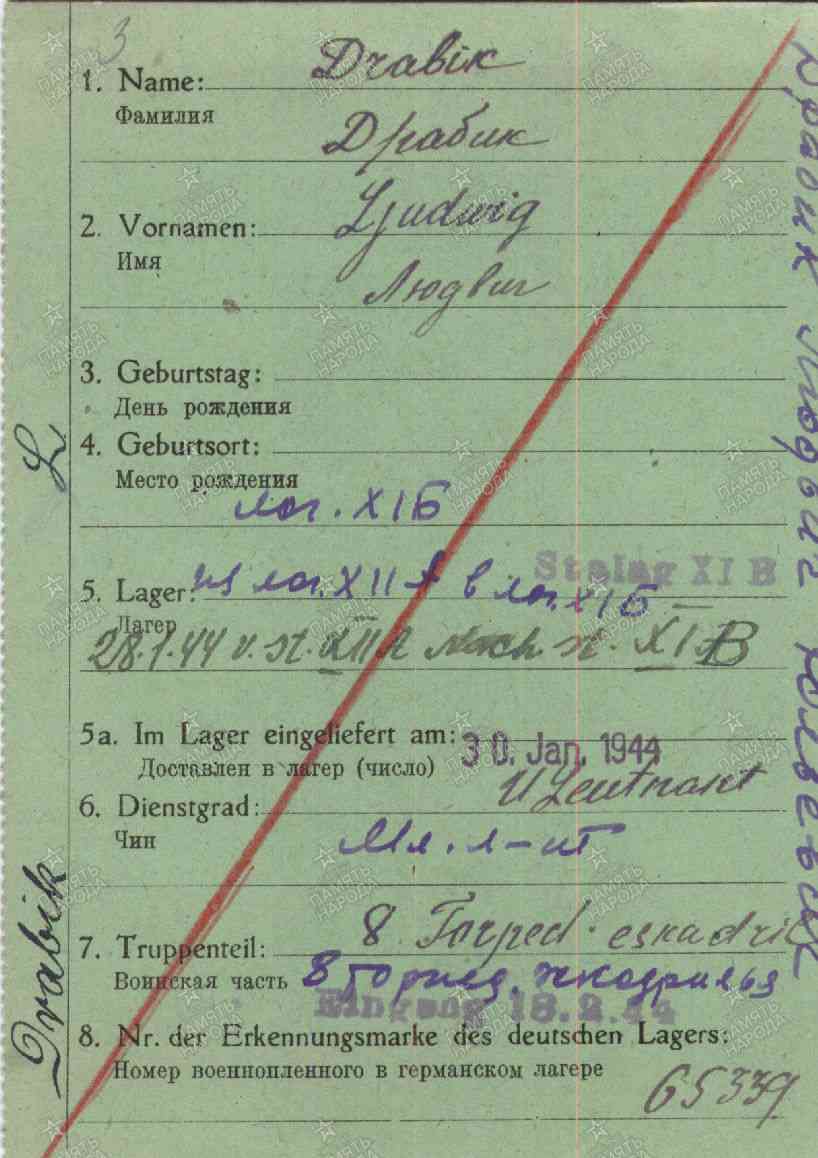 3
Drabik
1. Name:
Фамилия
Драбик
Ljudwig
2. Vornamen:
Имя
Людвиг
3. Geburtstag:
День рождения
4. Geburtsort:
Место рождения
лог. XIБ
Stalag XI B
5. Lager: из лог. XII А в лог. XIБ
Лагер
28.1.44 v. St. XII A nach. St. XI B
5a. Im Lager eingeliefert am: 30. Jan. 1944
Доставлен в лагер (число)
U Leutnant
6. Dienstgrad:
Чин
Мл. л-нт
8 Torped. eskadril
7. Truppenteil:
Воинская часть 8 торпед. эскадрилья
Eingang 18.2.44
8. Nr. der Erkennungsmarke des deutschen Lagers:
Номер военнопленного в германском лагере
65339
Drabik L.
Драбик Людвиг
ПАМЯТЬ НАРОДА